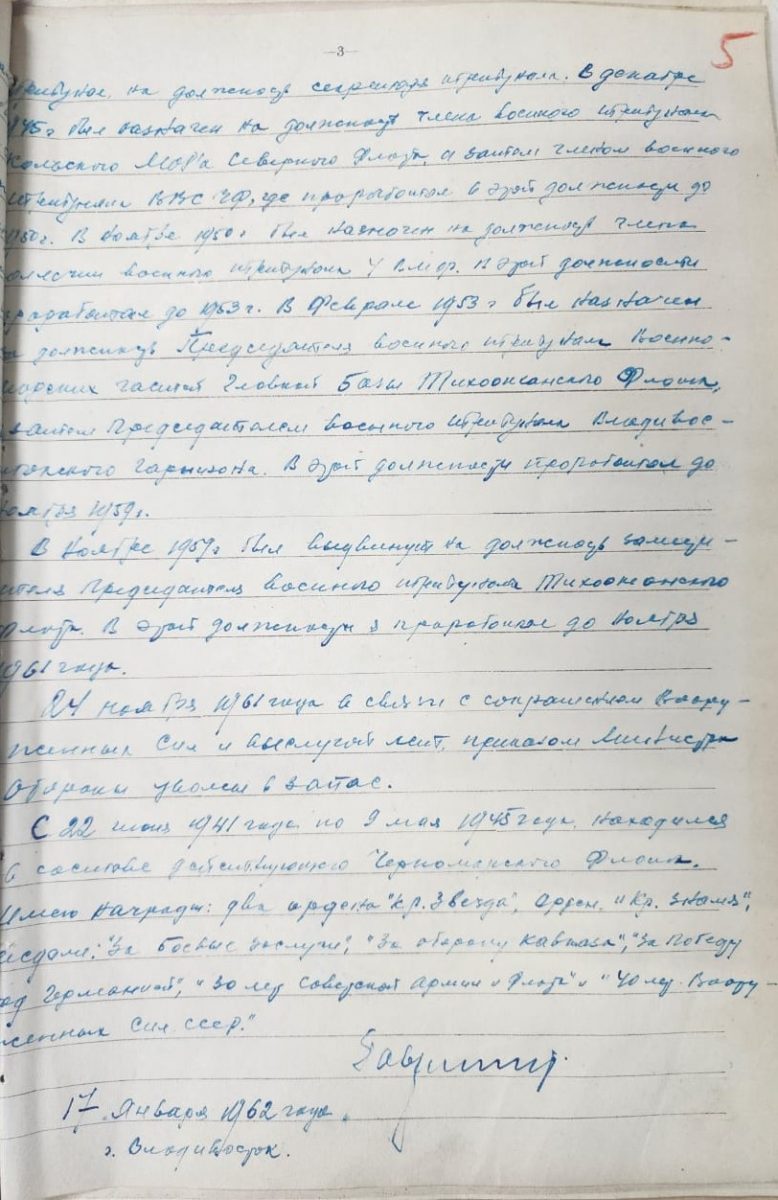 —3—
5
трибунал, на должность секретаря трибунала. В декабре
1945г был назначен на должность члена военного трибунала
Кольского МОР'а Северного Флота, а затем членом военного
трибунала ВВС ЧФ, где проработал в этой должности до
1950г. В Ноябре 1950г был назначен на должность члена
военного трибунала 4 ВМФ. В этой должности
проработал до 1953г. В Феврале 1953г был назначен
на должность Председателя военного трибунала Военно-
морских частей Главной Базы Тихоокеанского Флота,
затем Председателем военного трибунала Владивос-
токского гарнизона. В этой должности проработал до
ноября 1959г.
В Ноябре 1959г был выдвинут на должность замести-
теля Председателя военного трибунала Тихоокеанского
Флота. В этой должности я проработал до Ноября
1961 года.
24 ноября 1961 года в связи с сокращением Воору-
женных Сил и выслугой лет, приказом Министра
Обороны уволен в запас.
С 22 июня 1941 года по 9 мая 1945 года, находился
в составе действующего Черноморского Флота.
Имею награды: два ордена "Кр. Звезда", орден "Кр. Знамя",
медали: "За боевые заслуги", "За оборону Кавказа", "За Победу
над Германией", "30 лет Советской Армии и Флота" и "40 лет Воору-
женных Сил СССР."
17 Января 1962 года.
г. Владивосток.